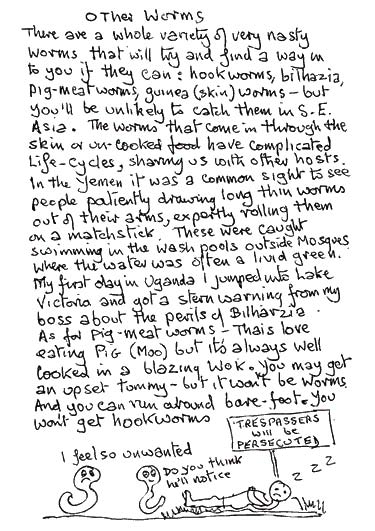 Other Worms
There are a whole variety of very nasty
worms that will try and find a way in
to you if they can: hookworms, bilhazia,
pig-meat worms, guinea (skin) worms – but
you'll be unlikely to catch them in S.E.
Asia. The worms that come in through the
skin or un-cooked food have complicated
life-cycles, sharing us with other hosts.
In the Yemen it was a common sight to see
people patiently drawing long thin worms
out of their arms, expertly rolling them
on a matchstick. These were caught
swimming in the wash pools outside Mosques
where the water was often a livid green.
My first day in Uganda I jumped into Lake
Victoria and got a stern warning from my
boss about the perils of Bilharzia.
As for Pig-meat worms – Thais love
eating PiG (Moo) but it's always well
cooked in a blazing wok. You may get
an upset tummy – but it won't be worms.
And you can run around bare-foot. You
won't get hookworms
TRESPASSERS
will be
PERSECUTED
I feel so unwanted
Do you think
he'll notice
Z Z Z